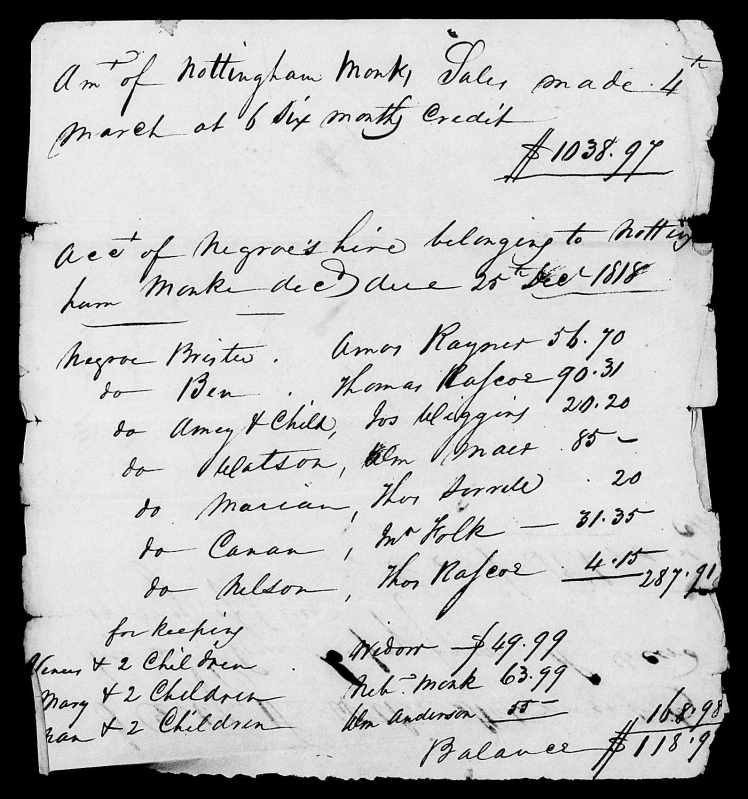 Amt of Nottingham Monks Sales made 4th
March at 6 Six months Credit
$ 1038.97
Acct of Negroe's hire belonging to Notting
ham Monke decd due 25th Decr 1818
Negroe Brister . Amos Rayner 56.70
do Ben . Thomas Rascoe 90.31
do Amey & Child, Jos Wiggins 20.20
do Watson, Wm 85 –
do Marian, Thos . 20
do Canan, Mr Folk — 31.35
do Nelson, Thos Rascoe . 4.15 287.91
for keeping
Venus & 2 Children . Widow — $ 49.99
Mary & 2 Children Neb. Monk 63.99
& 2 Children Wm Anderson 55 – 168.98
Balance $ 118.9